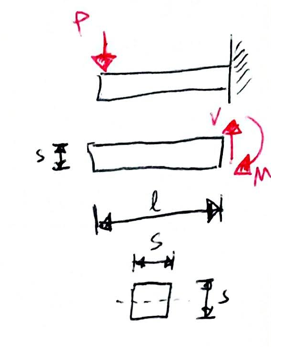 P
V
S
M
l
S
S